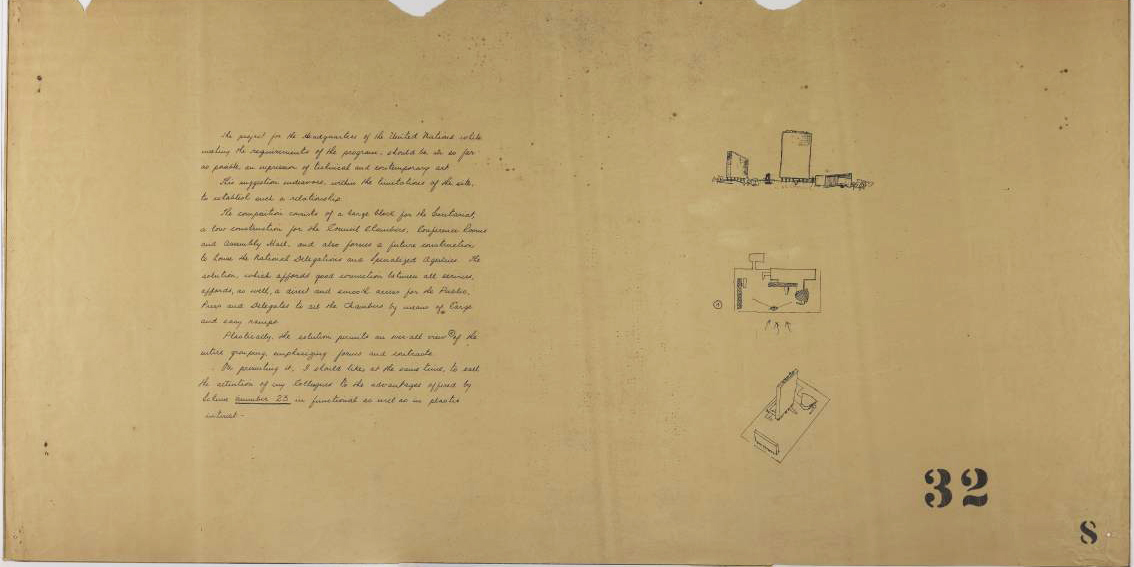 The project for the Headquarters of the United Nations while
meeting the requirements of the program, should be in so far
as possible an expression of technical and contemporary art
This suggestion endeavors, within the limitations of the site,
to establish such a relationship.
The composition consists of a large block for the Secretariat,
a low construction for the Council Chambers, Conference Rooms
and Assembly Hall, and also forsees a future construction
to house the National Delegations and Specialized Agencies. The
solution, which affords good connection between all services,
affords, as well, a direct and smooth access for the Public,
Press and Delegates to all the Chambers by means of large
and easy ramps
Plastically, the solution permits an over-all view of the
entire grouping, emphasizing forms and contrasts
On presenting it, I should like, at the same time, to call
the attention of my Colleagues to the advantages offered by
Scheme number 23 in functional as well as in plastic
interest -
32
8